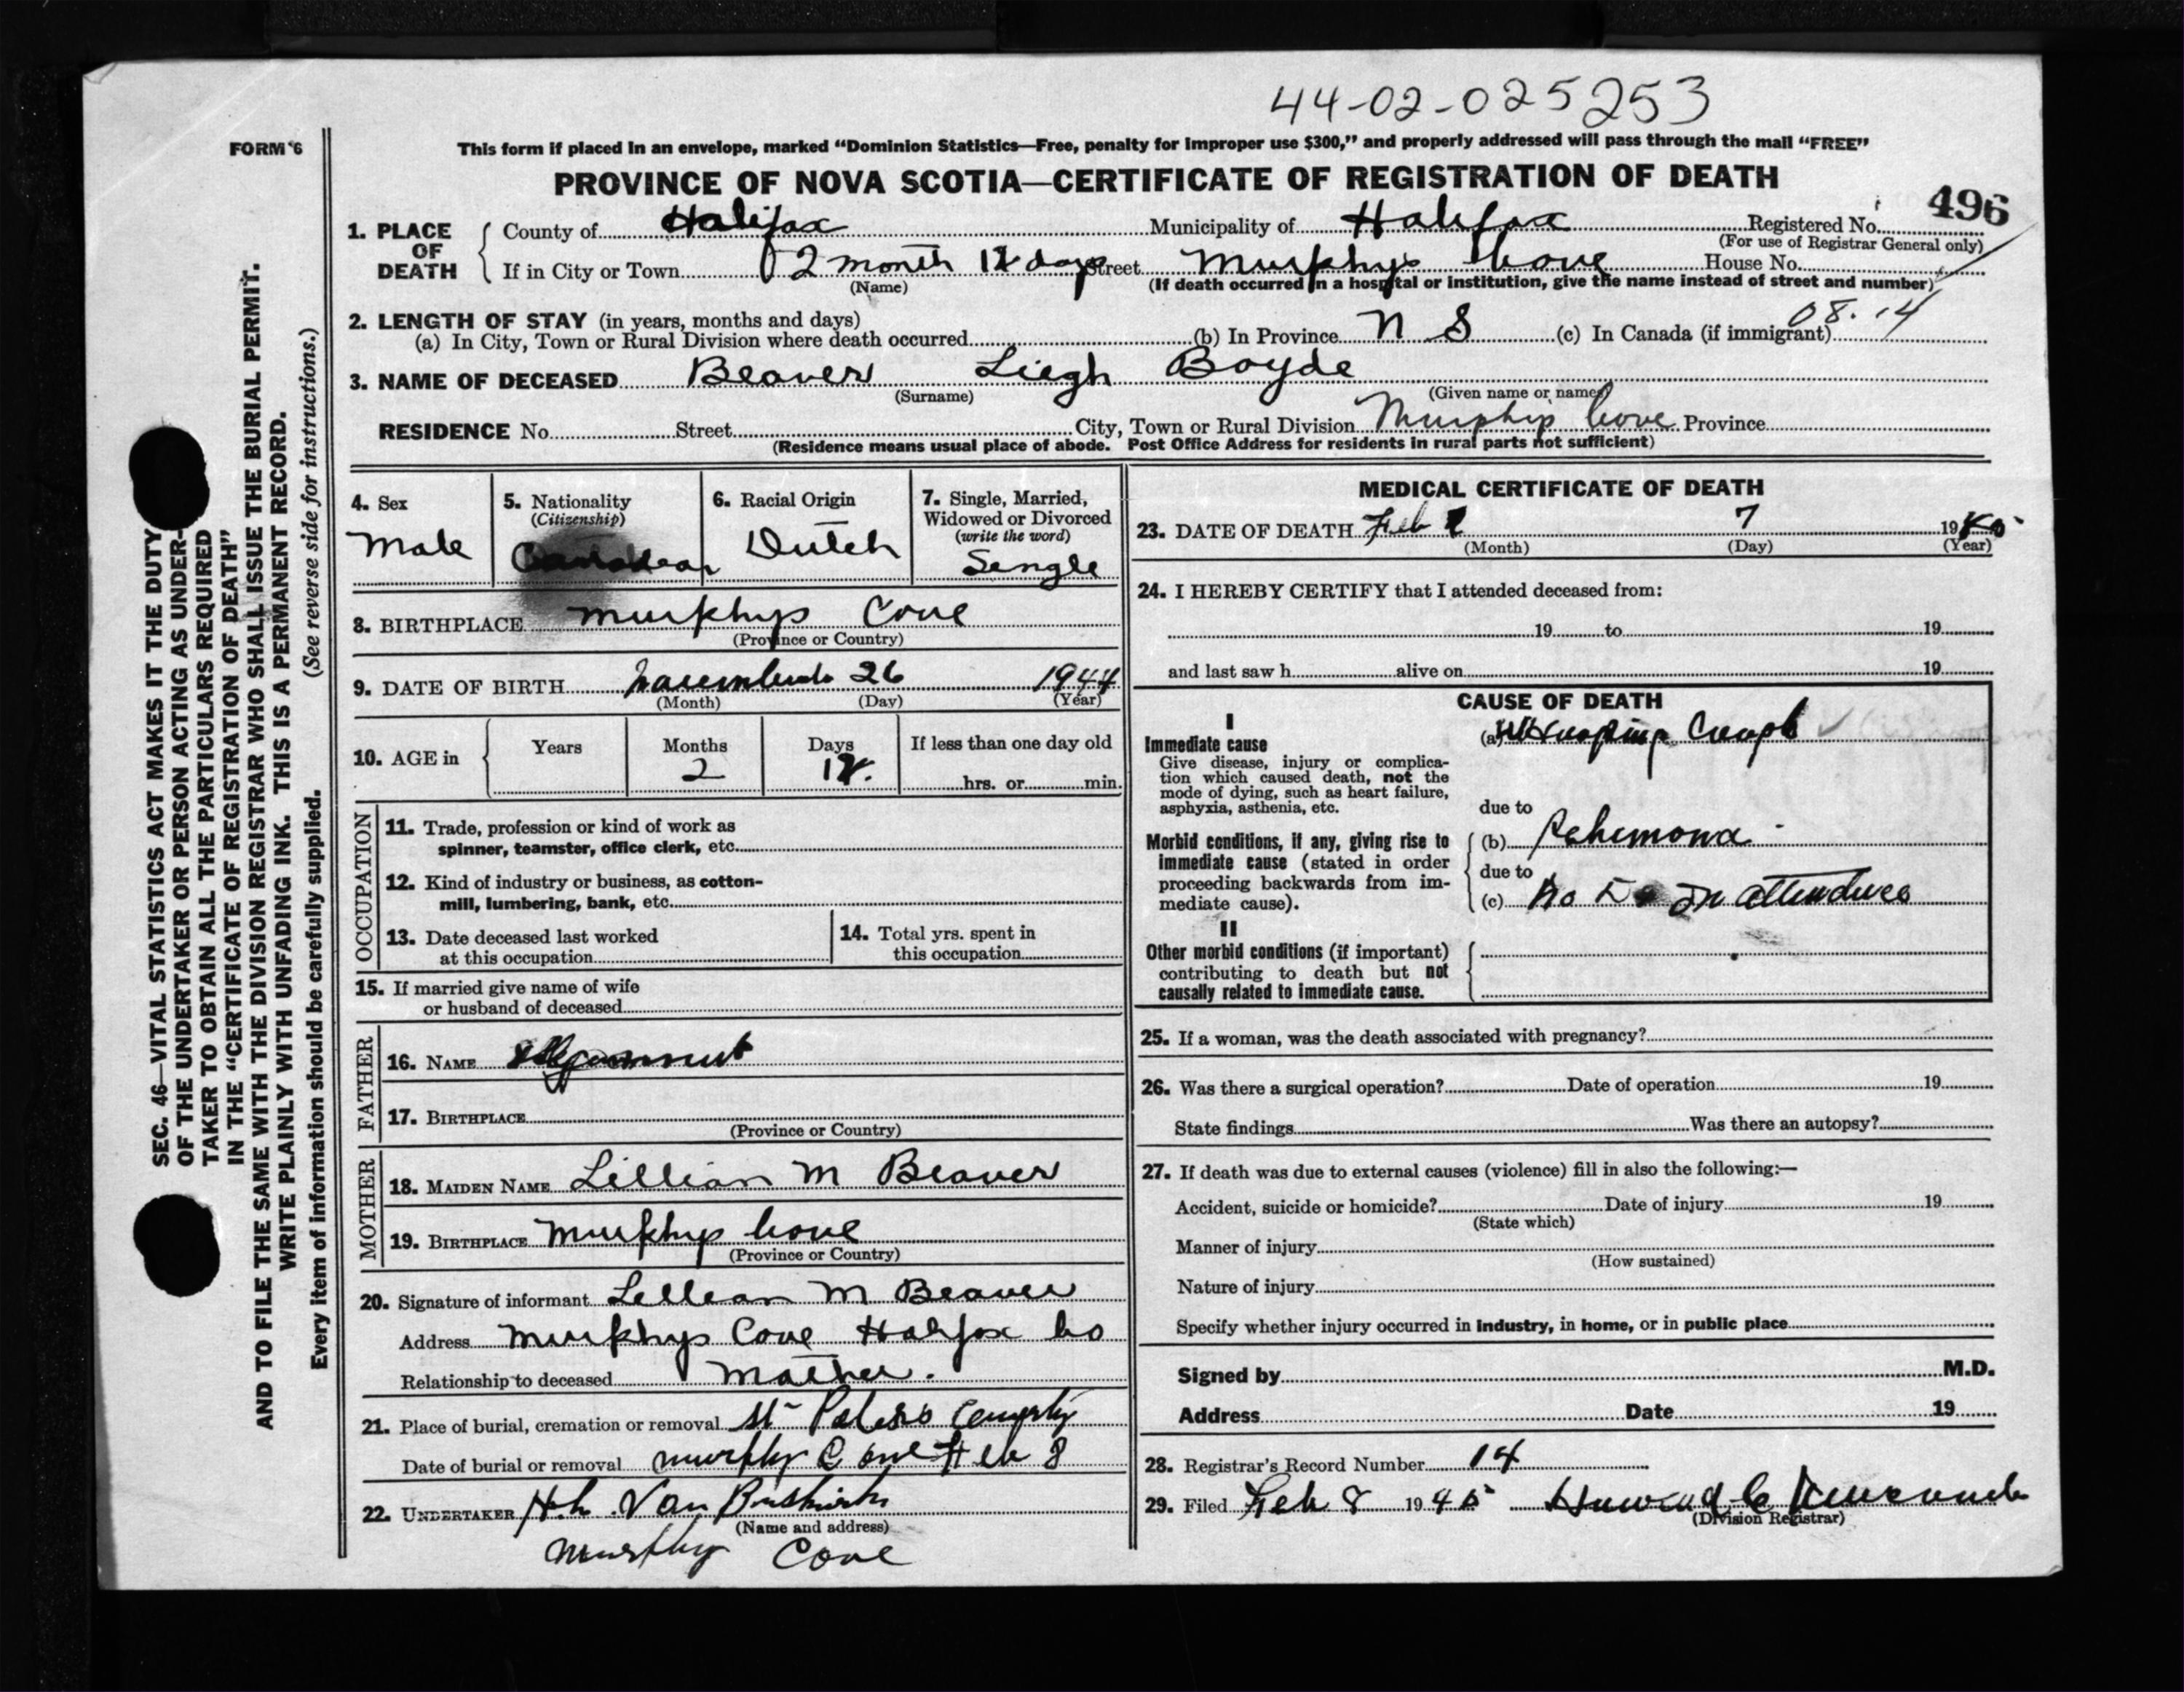 44-02-025253
FORM 6
This form if placed in an envelope, marked "Dominion Statistics—Free, penalty for improper use $300," and properly addressed will pass through the mail "FREE"
PROVINCE OF NOVA SCOTIA—CERTIFICATE OF REGISTRATION OF DEATH
496
1. PLACE OF DEATH County of Halifax Municipality of Halifax Registered No.
(For use of Registrar General only)
If in City or Town 2 month 12 days Street Murphys Cove House No.
(Name) (If death occurred in a hospital or institution, give the name instead of street and number)
08.14
2. LENGTH OF STAY (in years, months and days)
(a) In City, Town or Rural Division where death occurred (b) In Province N S (c) In Canada (if immigrant)
3. NAME OF DECEASED Beaver Liegh Boyde
(Surname) (Given name or names)
RESIDENCE No. Street City, Town or Rural Division Murphys Cove Province
(Residence means usual place of abode. Post Office Address for residents in rural parts not sufficient)
4. Sex Male
5. Nationality (Citizenship) Canadian
6. Racial Origin Dutch
7. Single, Married, Widowed or Divorced (write the word) Single
8. BIRTHPLACE Murphys Cove
(Province or Country)
9. DATE OF BIRTH 26 1944
(Month) (Day) (Year)
10. AGE in Years Months 2 Days 12. If less than one day old
hrs. or min.
OCCUPATION
11. Trade, profession or kind of work as
spinner, teamster, office clerk, etc.
12. Kind of industry or business, as cotton-
mill, lumbering, bank, etc.
13. Date deceased last worked
at this occupation
14. Total yrs. spent in
this occupation
15. If married give name of wife
or husband of deceased
FATHER
16. NAME
17. BIRTHPLACE
(Province or Country)
MOTHER
18. MAIDEN NAME Lillian M Beaver
19. BIRTHPLACE Murphys Cove
(Province or Country)
20. Signature of informant Lillian M Beaver
Address Murphys Cove Halifax Co
Relationship to deceased Mother.
21. Place of burial, cremation or removal St Peters
Date of burial or removal Murphy Cove Feb 8
22. UNDERTAKER Van Buskirk
(Name and address)
Murphy Cove
MEDICAL CERTIFICATE OF DEATH
23. DATE OF DEATH Feb 7 1945
(Month) (Day) (Year)
24. I HEREBY CERTIFY that I attended deceased from:
19 to 19
and last saw h alive on 19
CAUSE OF DEATH
I
Immediate cause
Give disease, injury or complica-
tion which caused death, not the
mode of dying, such as heart failure,
asphyxia, asthenia, etc.
(a) Cough
due to
Morbid conditions, if any, giving rise to
immediate cause (stated in order
proceeding backwards from im-
mediate cause).
(b)
due to
(c) No Dr in
II
Other morbid conditions (if important)
contributing to death but not
causally related to immediate cause.
25. If a woman, was the death associated with pregnancy?
26. Was there a surgical operation? Date of operation 19
State findings Was there an autopsy?
27. If death was due to external causes (violence) fill in also the following:—
Accident, suicide or homicide? Date of injury 19
(State which)
Manner of injury
(How sustained)
Nature of injury
Specify whether injury occurred in industry, in home, or in public place
Signed by M.D.
Address Date 19
28. Registrar's Record Number 14
29. Filed Feb 8 1945
(Division Registrar)
SEC. 46—VITAL STATISTICS ACT MAKES IT THE DUTY
OF THE UNDERTAKER OR PERSON ACTING AS UNDER-
TAKER TO OBTAIN ALL THE PARTICULARS REQUIRED
IN THE "CERTIFICATE OF REGISTRATION OF DEATH"
AND TO FILE THE SAME WITH THE DIVISION REGISTRAR WHO SHALL ISSUE THE BURIAL PERMIT.
WRITE PLAINLY WITH UNFADING INK. THIS IS A PERMANENT RECORD.
Every item of information should be carefully supplied. (See reverse side for instructions.)